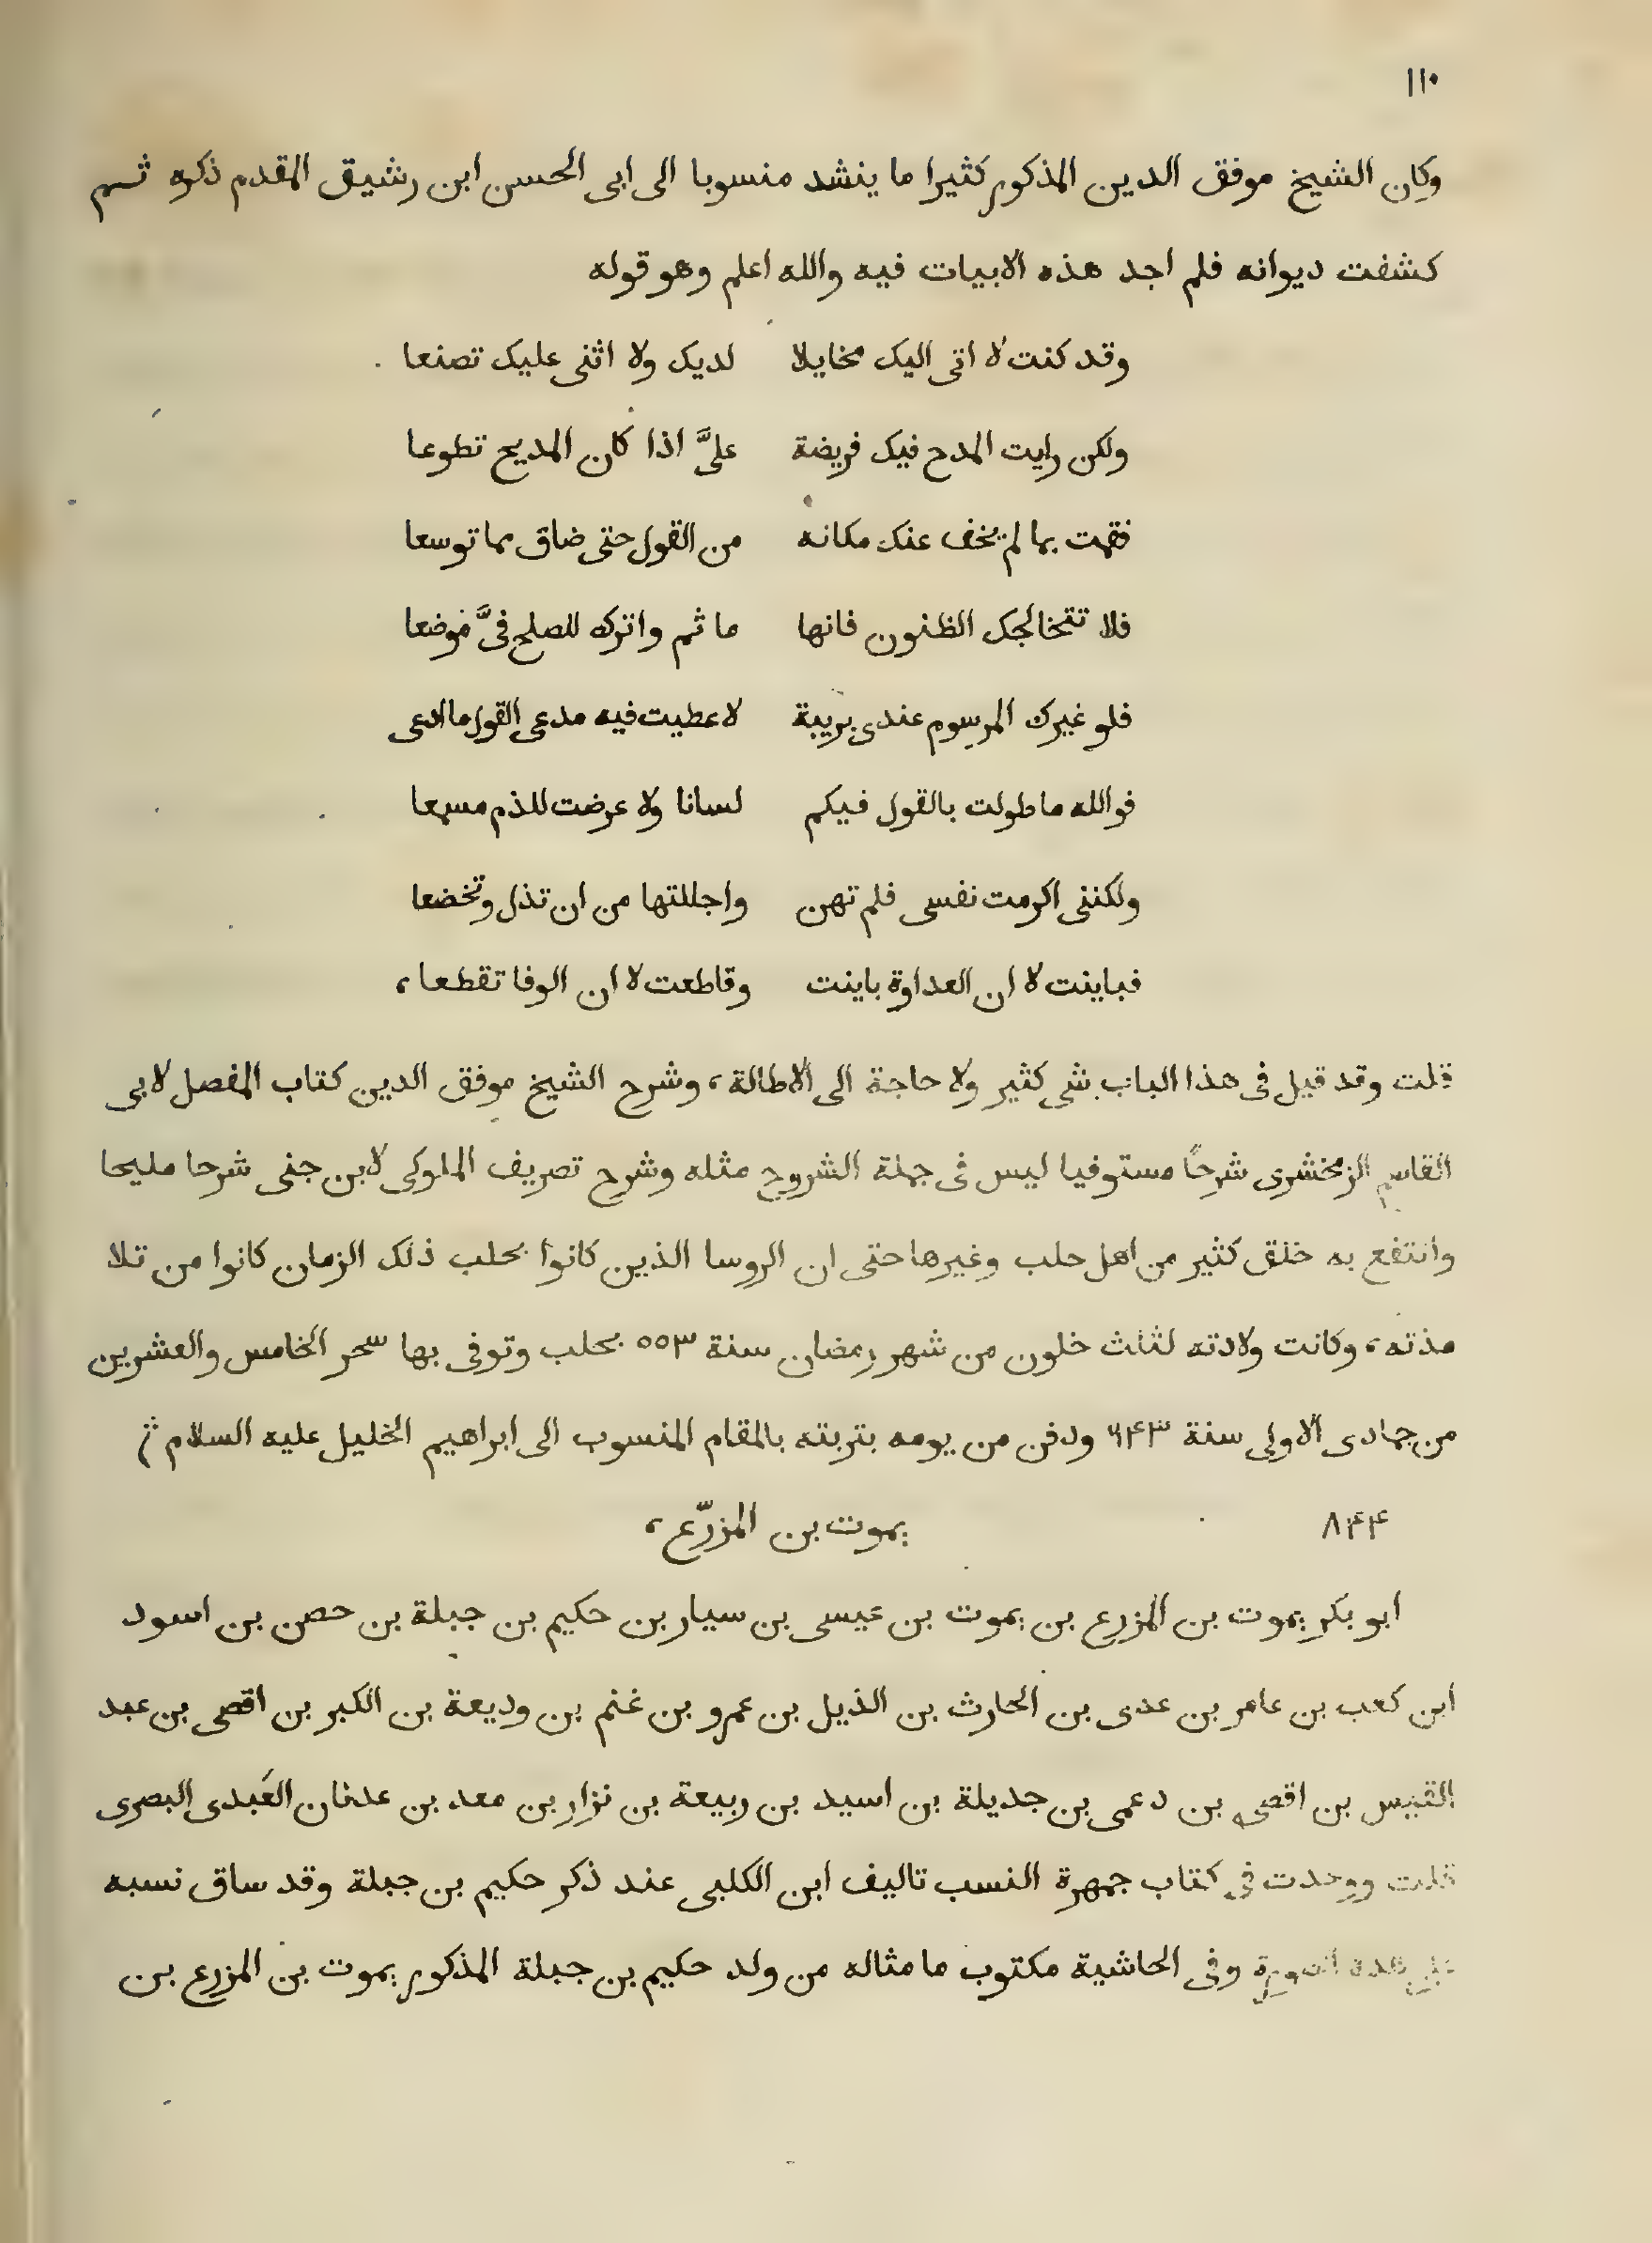 ١١٠
وكان الشيخ موفق الدين المذكور كثيرا ما ينشد منسوبا الى ابى الحسن ابن رشيق المقدم ذكره ثم
كشفت ديوانه فلم اجد هذه الابيات فيه والله اعلم وهو قوله
وقد كنت لا اتى اليك مخايلا لديك ولا اثنى عليك تصنعا
ولكن رايت المدح فيك فريضة علىَّ اذا كان المديح تطوعا
فقمت بما لم يخف عنك مكانه من القول حتى ضاق مما توسعا
فلا تتخالجك الظنون فانها ماثم واترك للصلح فىَّ موضعا
فلو غيرك المرسوم عندى بريبة لاعطيت فيه مدعى القول ما ادعى
فوالله ما طولت بالقول فيكم لسانا ولا عرضت للذم مسمعا
ولكننى اكرمت نفسى فلم تهن واجللتها من ان تذل وتخضعا
فباينت لا ان العداوة باينت وقاطعت لا ان الوفا تقطعا،
قلت وقد قيل فى هذا الباب شى كثير ولا حاجة الى الاطالة، وشرح الشيخ موفق الدين كتاب المفصل لابى
القاسم الزمخشرى شرحًا مستوفيا ليس فى جملة الشروح مثله وشرح تصريف الملوكى لابن جنى شرحا مليحا
وانتفع به خلق كثير من اهل حلب وغيرها حتى ان الروسا الذين كانوا بحلب ذلك الزمان كانوا من تلا
مذته، وكانت ولادته لثلث خلون من شهر رمضان سنة ٥٥٣ بحلب وتوفى بها سحر الخامس والعشرين
من جمادى الاولى سنة ٦٤٣ ودفن من يومه بتربته بالمقام المنسوب الى ابراهيم الخليل عليه السلام
٨٤٤ يموت بن المزرّع،
ابو بكر يموت بن المزرع بن يموت بن عيسى بن سيار بن حكيم بن جبلة بن حصن بن اسود
ابن كعب بن عامر بن عدى بن الحارث بن الذيل بن عمرو بن غنم بن وديعة بن الكبر بن اقصى بن عبد
القيس بن اقصى بن دعمى بن جديلة بن اسيد بن ربيعة بن نزار بن معد بن عدنان العَبدى البصرى
قلت ووجدت فى كتاب جمهرة النسب تاليف ابن الكلبى عند ذكر حكيم بن جبلة وقد ساق نسبه
على هذه الصورة وفى الحاشية مكتوب ما مثاله من ولد حكيم بن جبلة المذكور يموت بن المزرع بن